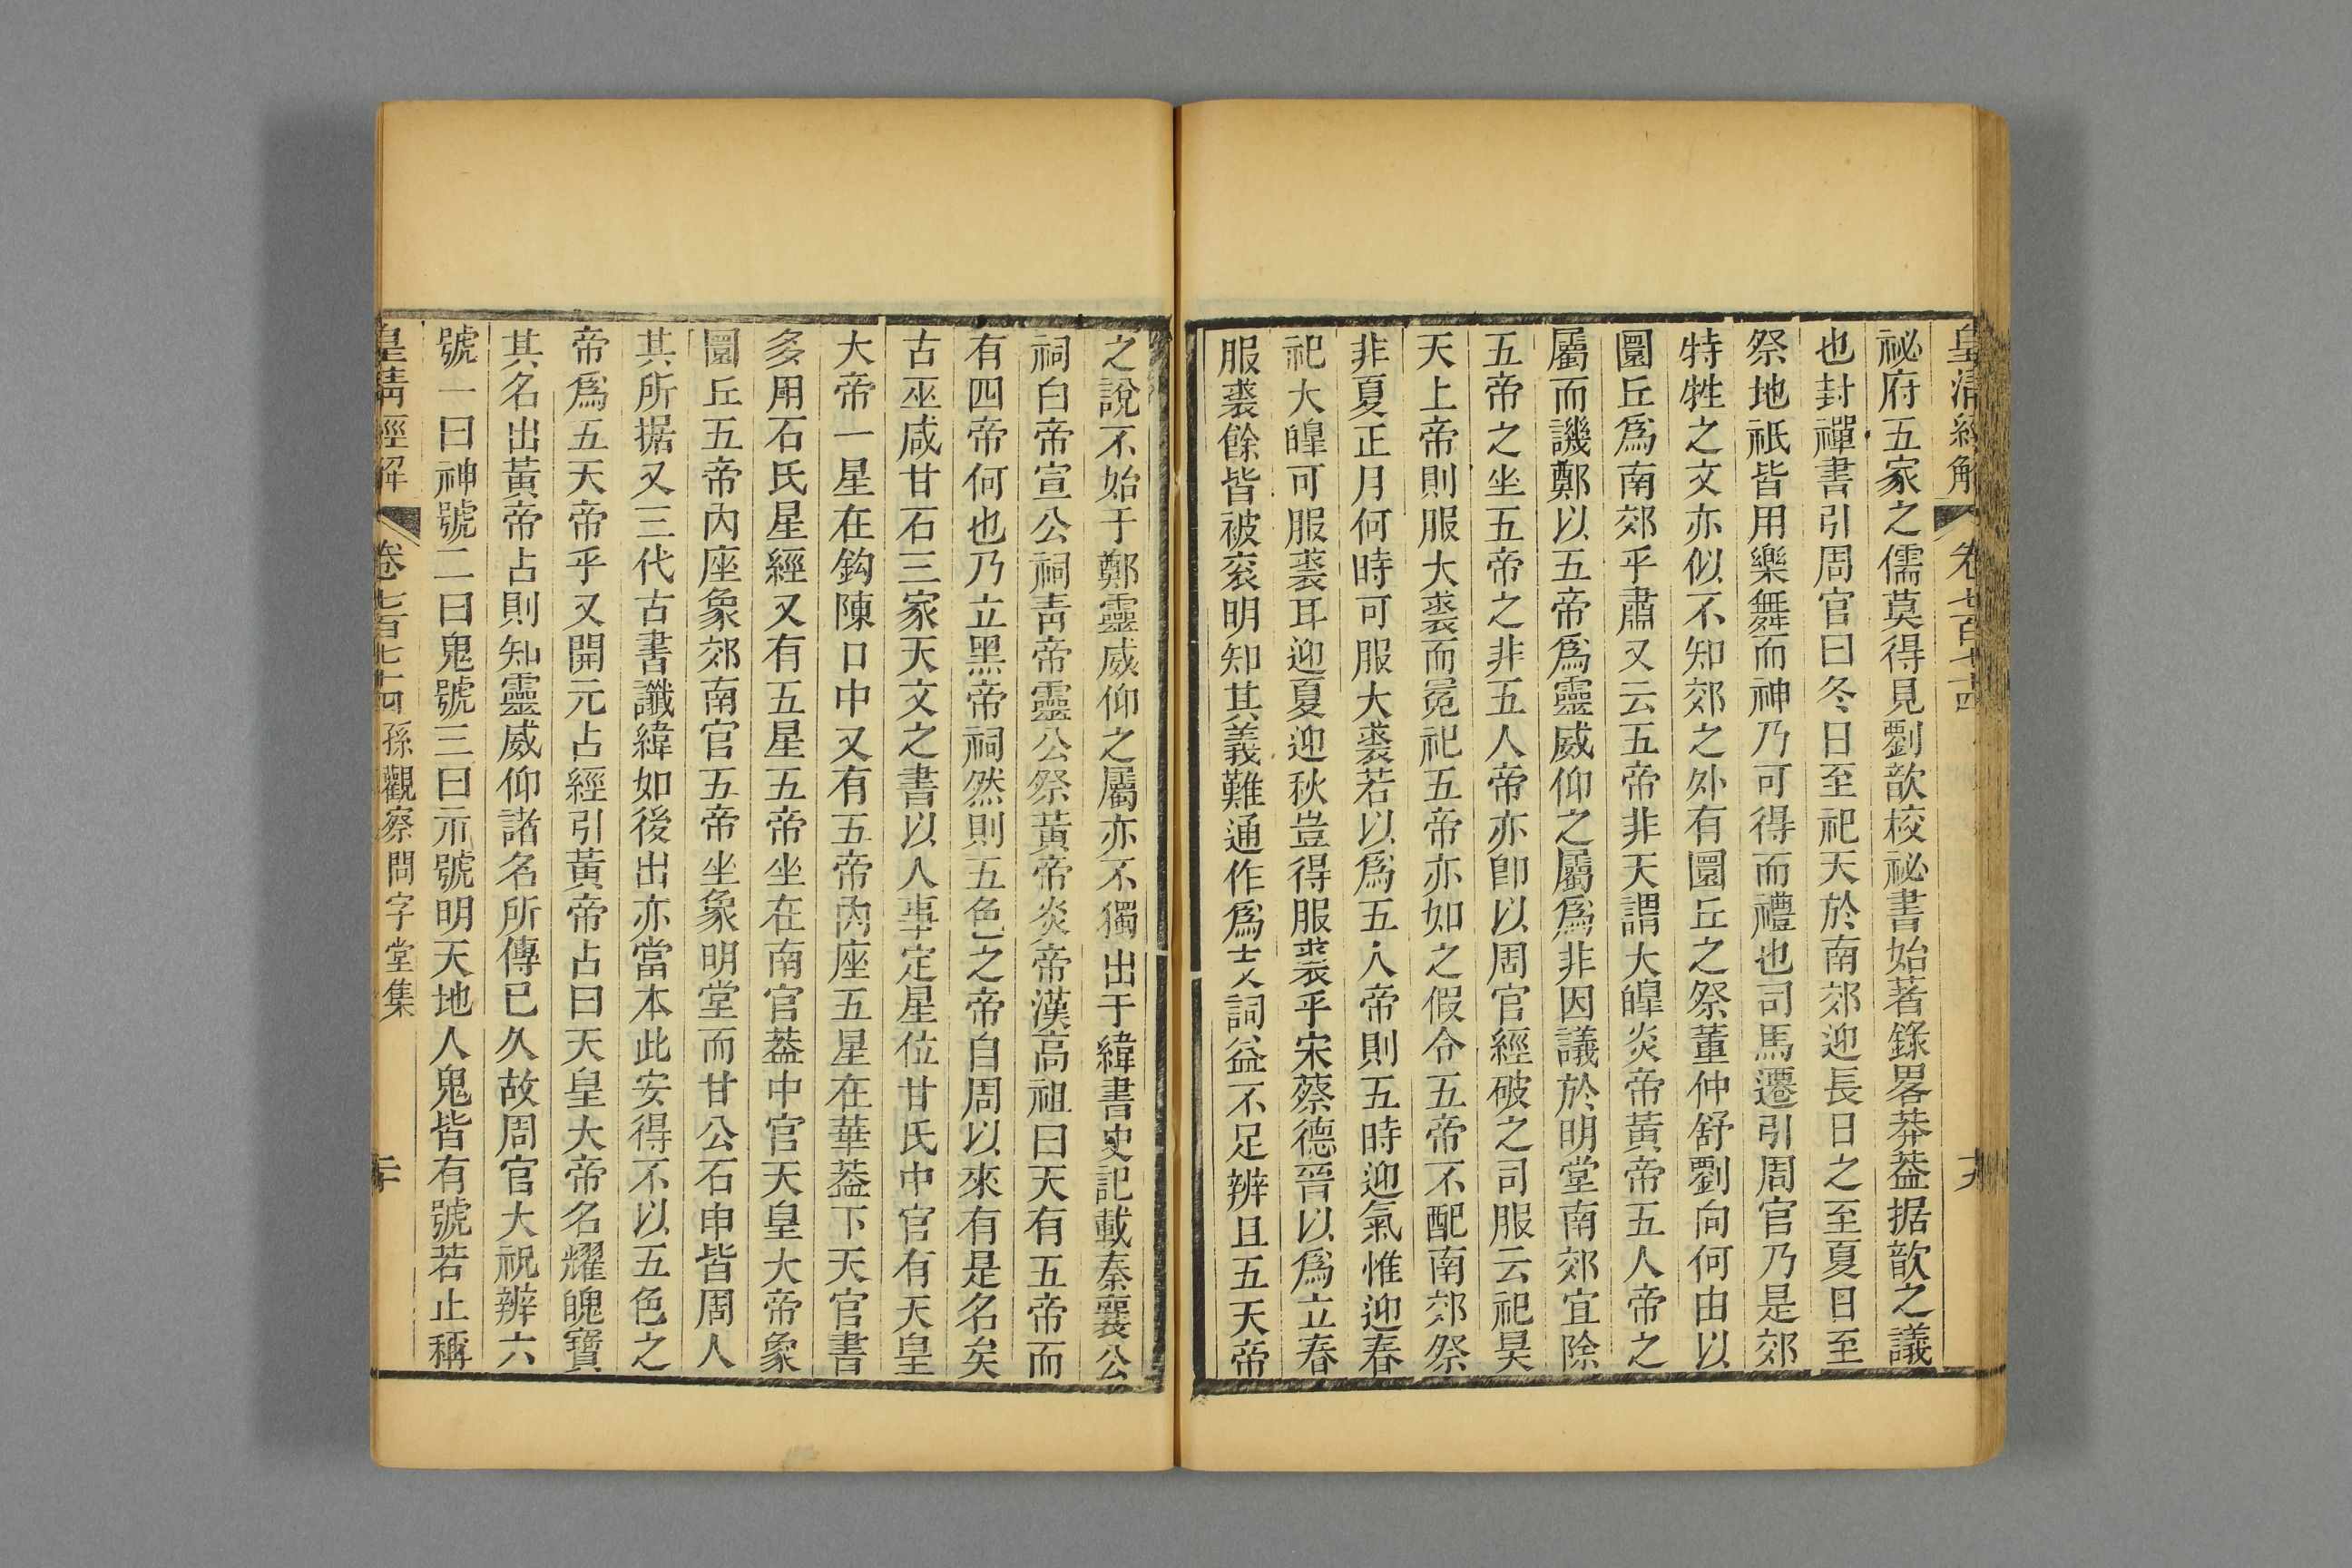 皇清經解 卷七百七十四 十九
祕府五家之儒莫得見劉歆校祕書始著錄畧莽葢据歆之議
也封禪書引周官曰冬日至祀天於南郊迎長日之至夏日至
祭地祇皆用樂舞而神乃可得而禮也司馬遷引周官乃是郊
特牲之文亦似不知郊之外有圜丘之祭董仲舒劉向何由以
圜丘爲南郊乎肅又云五帝非天謂大皥炎帝黃帝五人帝之
屬而譏鄭以五帝爲靈威仰之屬爲非因議於明堂南郊宜除
五帝之坐五帝之非五人帝亦卽以周官經破之司服云祀昊
天上帝則服大裘而冕祀五帝亦如之假令五帝不配南郊祭
非夏正月何時可服大裘若以爲五人帝則五時迎氣惟迎春
祀大皥可服裘耳迎夏迎秋豈得服裘乎宋蔡德晉以爲立春
服裘餘皆被衮明知其義難通作爲支詞益不足辨且五天帝
之說不始于鄭靈威仰之屬亦不獨出于緯書史記載秦襄公
祠白帝宣公祠靑帝靈公祭黃帝炎帝漢高祖曰天有五帝而
有四帝何也乃立黑帝祠然則五色之帝自周以來有是名矣
古巫咸甘石三家天文之書以人事定星位甘氏中官有天皇
大帝一星在鈎陳口中又有五帝內座五星在華葢下天官書
多用石氏星經又有五星五帝坐在南官葢中官天皇大帝象
圜丘五帝內座象郊南官五帝坐象明堂而甘公石申皆周人
其所据又三代古書讖緯如後出亦當本此安得不以五色之
帝爲五天帝乎又開元占經引黃帝占曰天皇大帝名耀魄寶
其名出黃帝占則知靈威仰諸名所傳已久故周官大祝辨六
號一曰神號二曰鬼號三曰示號明天地人鬼皆有號若止稱
皇清經解 卷七百七十四 孫觀察問字堂集 二十